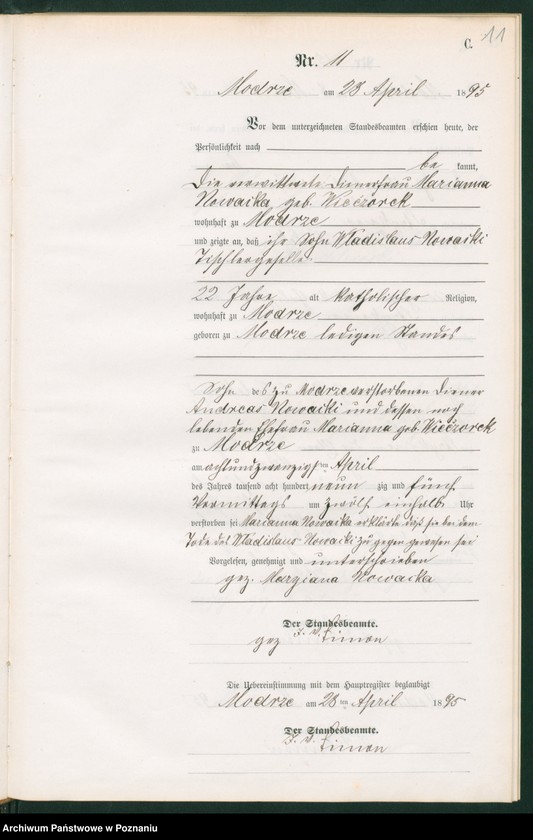 C. 11
Nr. 11
Modrze am 28 April 1895
Vor dem unterzeichneten Standesbeamten erschien heute, der
Persönlichkeit nach
be kannt,
Die verwittwete Dienerfrau Marianna
Nowacka geb. Wieczorek
wohnhaft zu Modrze
und zeigte an, daß ihr Sohn Wladislaus Nowacki
Tischlergeselle
22 Jahre alt katholischer Religion,
wohnhaft zu Modrze
geboren zu Modrze ledigen Standes
Sohn des zu Modrze verstorbenen Diener
Andreas Nowacki und dessen noch
lebenden Ehefrau Marianna geb. Wieczorek
zu Modrze
am achtundzwanzigsten April
des Jahres tausend acht hundert neun zig und fünf
Vormittags um zwölf einhalb Uhr
verstorben sei Marianna Nowacka erklärte daß sie bei dem
Tode des Wladislaus Nowacki zu gegen gewesen sei
Vorgelesen, genehmigt und unterschrieben
gez. Maryiana Nowacka
Der Standesbeamte.
gez J. V. Simon
Die Uebereinstimmung mit dem Hauptregister beglaubigt
Modrze am 28ten April 1895
Der Standesbeamte.
J. V. Simon
Archiwum Państwowe w Poznaniu